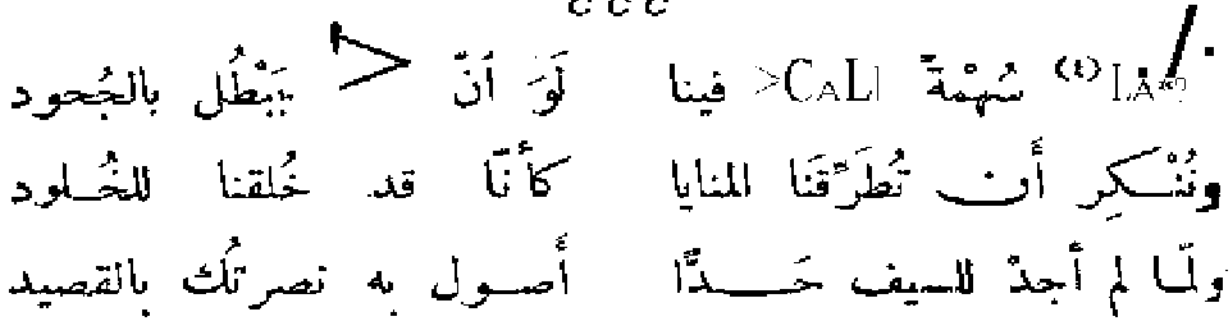 سُهْمَةَ فينا لَوَ آنّ يَبْطُل بالجُحود
ونُنْكِر أَن تُطَرِّقَنا المنايا كأنّا قد خُلقنا للخُلود
ولمّا لم أجدْ للسيف حَدًّا أَصول به نصرتُك بالقصيد